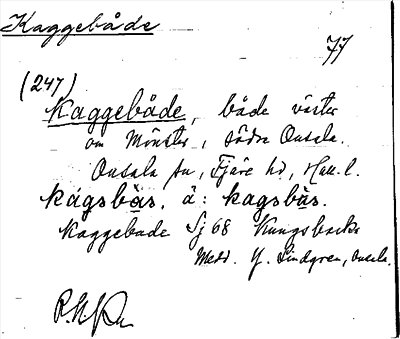 Kaggebåde
77
(247)
Kaggebåde, både väster
om Mönster, södra Onsala.
Onsala sn, Fjäre hd, Hall. l.
kágsbàs. ä: kagsbàs.
Kaggebade Sj 68 Kungsbacka
Medd. Y. Lindgren, Onsala.